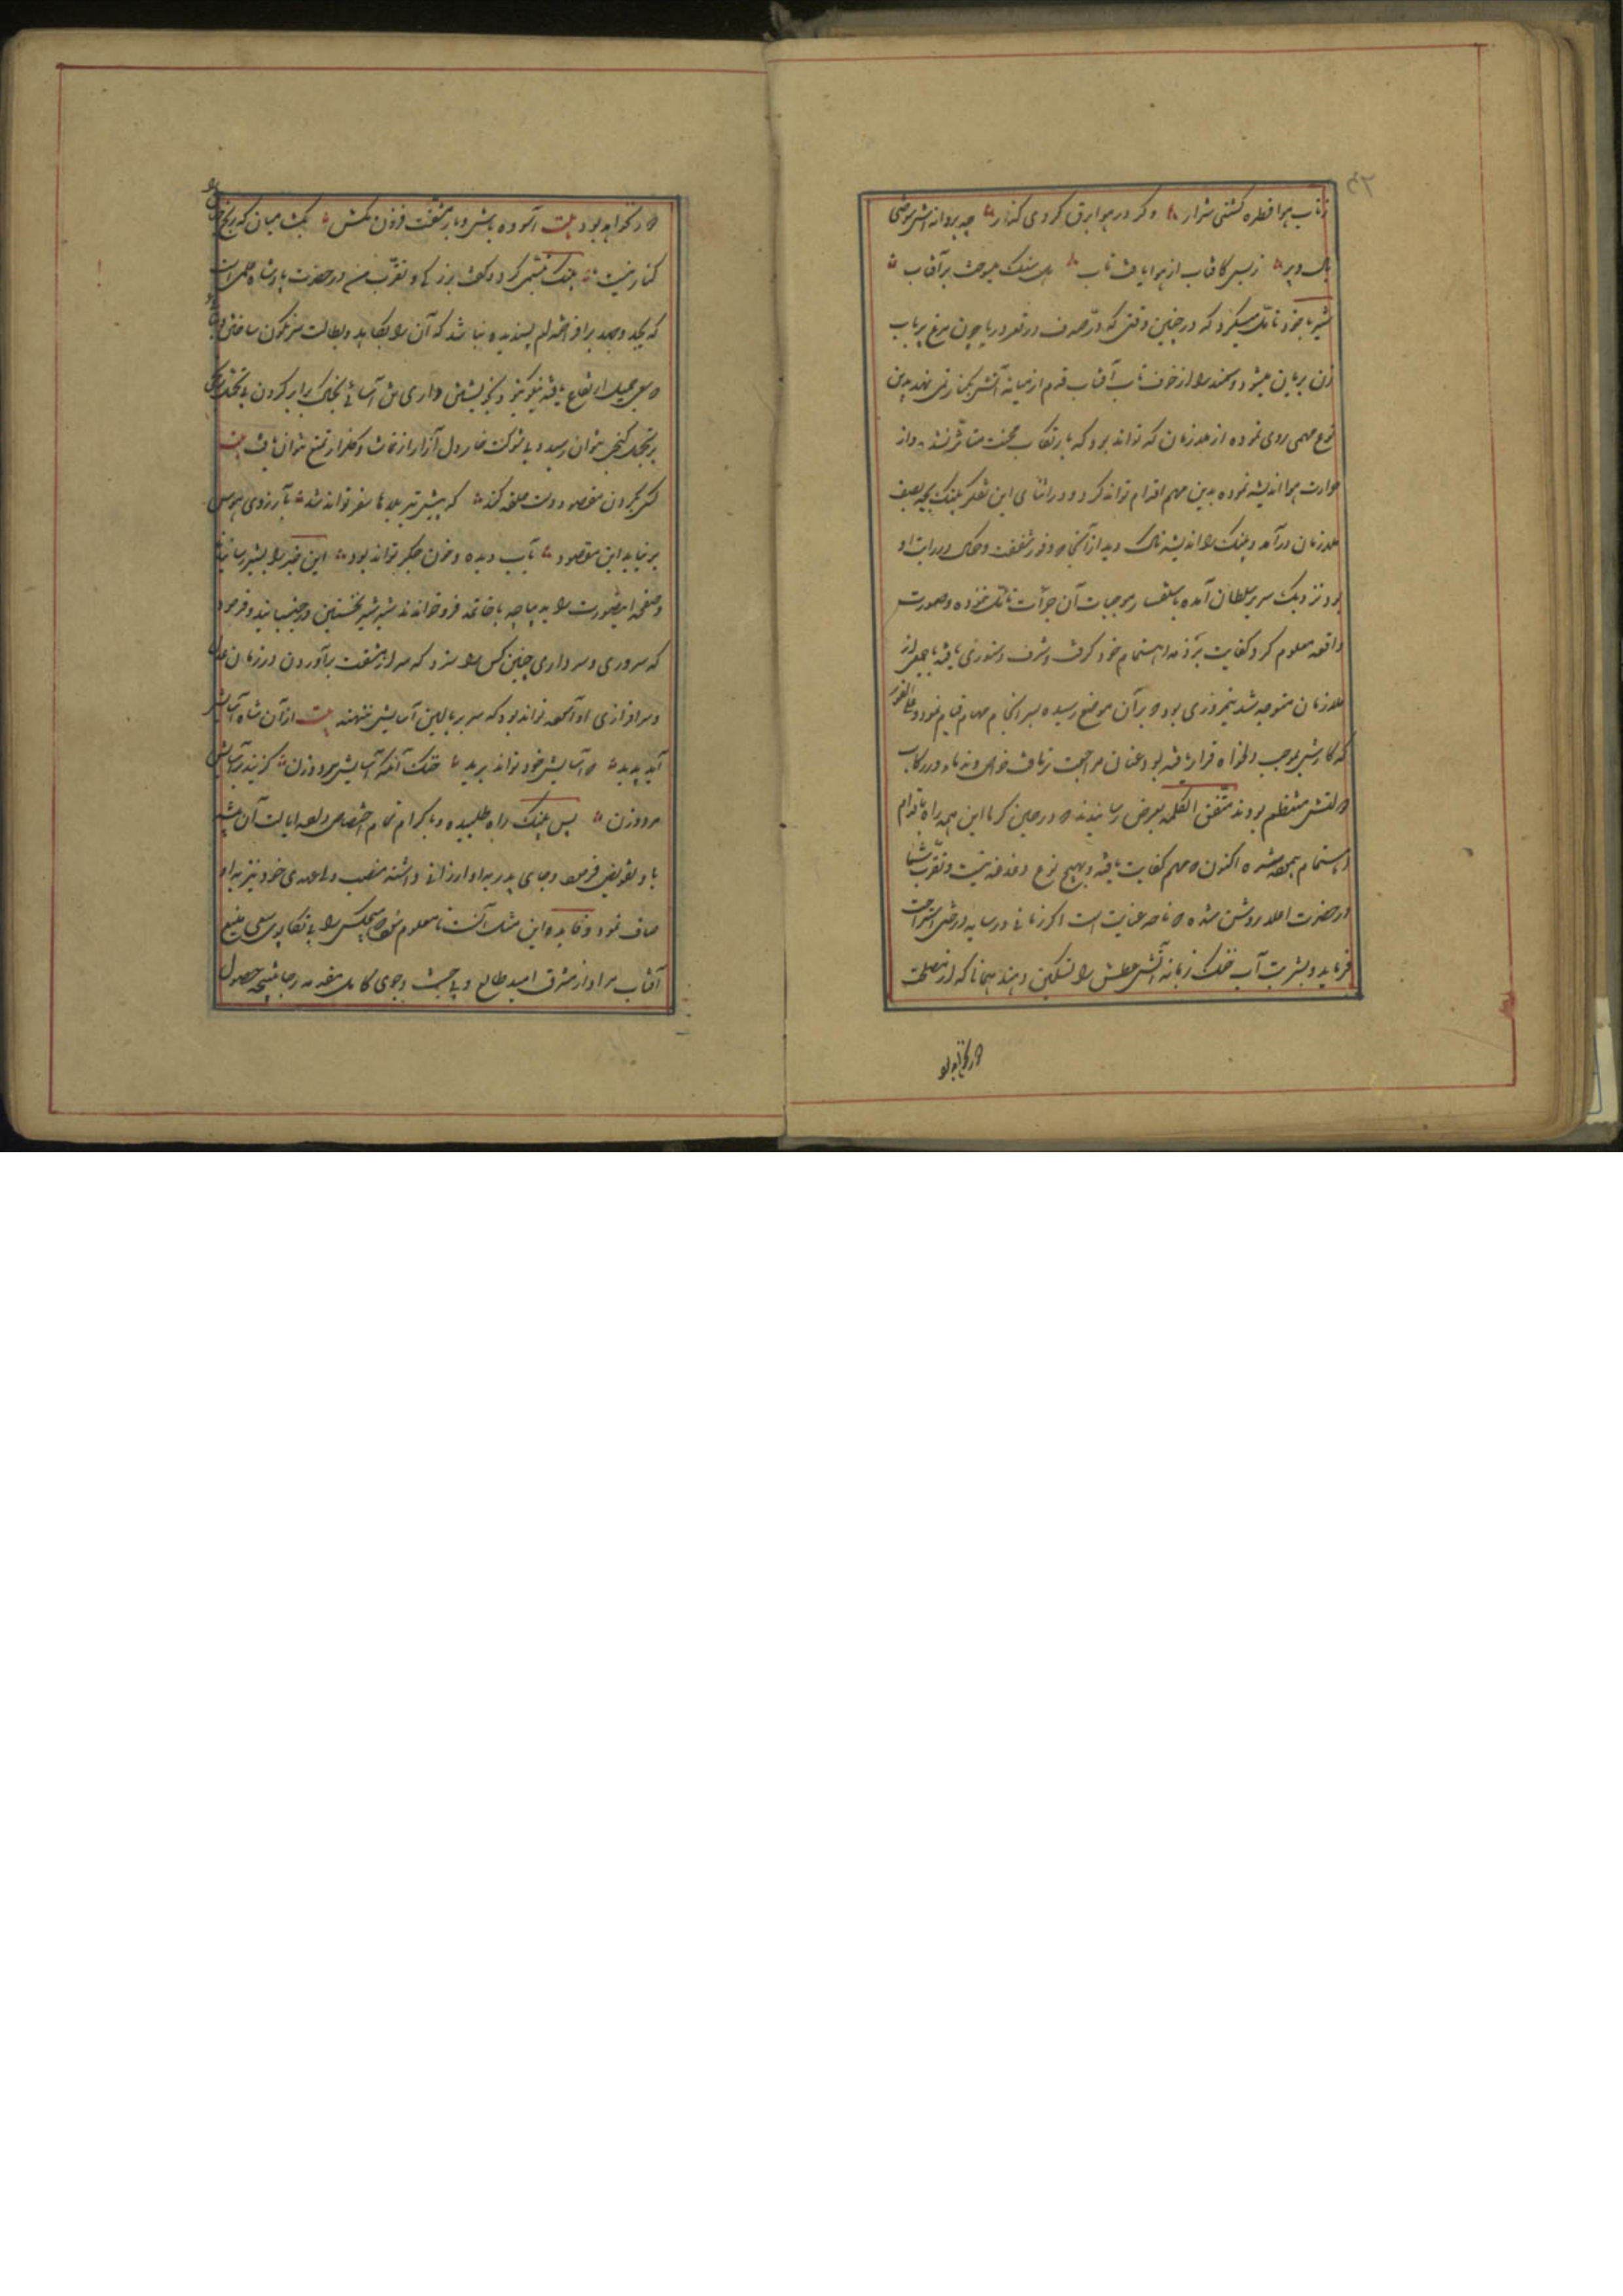 زتاب هوا قطره کشتی شرار وگر در هوا برق کردی گذار چو پروانه اش سوختی
بال و پر ز بس کافتاب از هوا یافت تاب دل سنگ میسوخت بر آفتاب
شیر با خود تأمل میکرد که در چنین وقتی که در صدف در قعر دریا چون مرغ بر باب
زن بریان میشود و سمندر از خوف تاب آفتاب قدم از میانه آتش بکنار نمی نهد بدین
نوع مهمی روی نموده از ملازمان که تواند بود که بارتکاب محنت متأثر نشده و از
حرارت هوا اندیشه نموده بدین مهم اقدام تواند کرد و در اثنای این تفکر پلنگ بچه بصف
ملازمان درآمد و ملک را اندیشه ناک دید از آنجا که وفور شفقت و کمال درایت او
بود نزدیک سریر سلطان آمده باستفسار موجبات آن جرأت نموده و صورت
واقعه معلوم کرد کفایت بر ذمه اهتمام خود گرفت و شرف دستوری یافته با جمعی از
ملازمان متوجه شد نیمروزی بود که بر آن موضع رسیده بسرانجام مهام قیام نمود و علی الفور
که کار شیر بموجب دلخواه قرار یافته بود عنان مراجعت بر تافت خواص و ندما که در رکاب
دولتش منتظم بودند متفق الکلمه بعرض رسانیدند که در حین گرما این همه راه باقدام
اهتمام پیموده شده اکنون که مهم کفایت یافته و بهیچ نوع دغدغه نیست و تقرب شما
در حضرت اعلا روشن شده که تا چه غایت است اگر زمانی در سایه درختی استراحت
فرماید و بشربت آب خنک زبانه آتش عطش را تسکین دهند همانا که از مصلحت
دور نخواهد بود
دور نخواهد بود بیت آسوده باش و بار مشقت فزون مکش بگشا میان که رنج جهان را
کنار نیست پلنگ تبسمی کرد و گفت بزرگی و تقرب من در حضرت پادشاه علمی است
که بجد و جهد برافراخته ام پسندیده نباشد که آن را بکاهلی و بطالت سرنگون ساختن
بسعی جمیل ارتفاع یافته نیکو نبود بخویشتن داری و تن آسانی بخاک برابر کردن بی تحمل رنج
بر گنجی نتوان رسید و بی شوکت خار دل آزار از تماشای گلزار تمتع نتوان یافت بیت
کسی بگردن مقصود دست حلقه کند که پیش تیر بلاها سپر تواند شد بآرزوی هوس
بر نیاید این مقصود بآب دیده و خون جگر تواند بود این خبر را بشیر رسانیدند
و صفحه این صورت را از دیباجه تا خاتمه فرو خواندند شیر سر تحسین در جنبانید و فرمود
که سروری و سرداری چنین کس را سزد که سر از مشقت برآوردن در زمان عدل
و سرافرازی او آسوده تواند بود که سر بر بالین آسایش ننهند بیت از آن شاه آسایش
آید پدید که آسایش خود تواند برید خنک آنکه آسایش مرد و زن گزیند بر آسایش
مرد و زن پس پلنگ را طلبیده و باکرام تمام اختصاص داده ایالت آن بیشه
باو تفویض فرمود و جای پدر بدو ارزانی داشته منصب ولیعهدی خود نیز بدو
مضاف نمود و فایده این مثل آنست تا معلوم شود که هیچکس را بی تکاپوی سعی بلیغ
آفتاب مراد از مشرق امید طالع و بی جست و جوی کامل مقدمه رجا نتیجه حصول